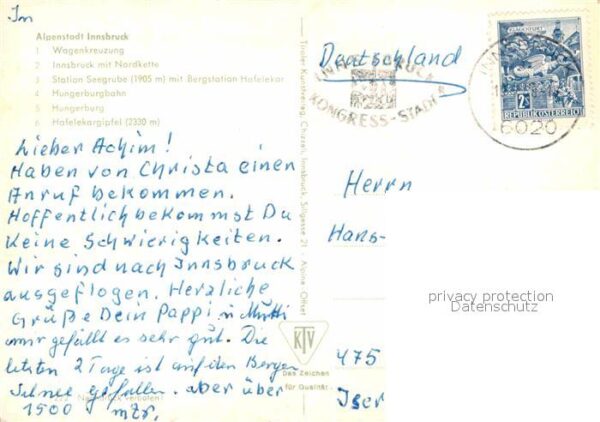 Im
Alpenstadt Innsbruck
1 Wagenkreuzung
2 Innsbruck mit Nordkette
3 Station Seegrube (1905 m) mit Bergstation Hafelekar
4 Hungerburgbahn
5 Hungerburg
6 Hafelekargipfel (2330 m)
Lieber Achim!
Haben von Christa einen
Anruf bekommen.
Hoffentlich bekommst Du
keine Schwierigkeiten.
Wir sind nach Innsbruck
ausgeflogen. Herzliche
Grüße Dein Pappi u Mutti
mir gefällt es sehr gut. Die
letzten 2 Tage ist auf den Bergen
Schnee gefallen. aber über
1500 mtr.
Tiroler Kunstverlag Chizzali, Innsbruck, Sillgasse 21 - Alpina-Offset
KTV
Das Zeichen
für Qualität
Deutschland
KONGRESS-STADT
6020
2 S
REPUBLIK ÖSTERREICH
Herrn
Hans-
privacy protection
Datenschutz
475
Iser